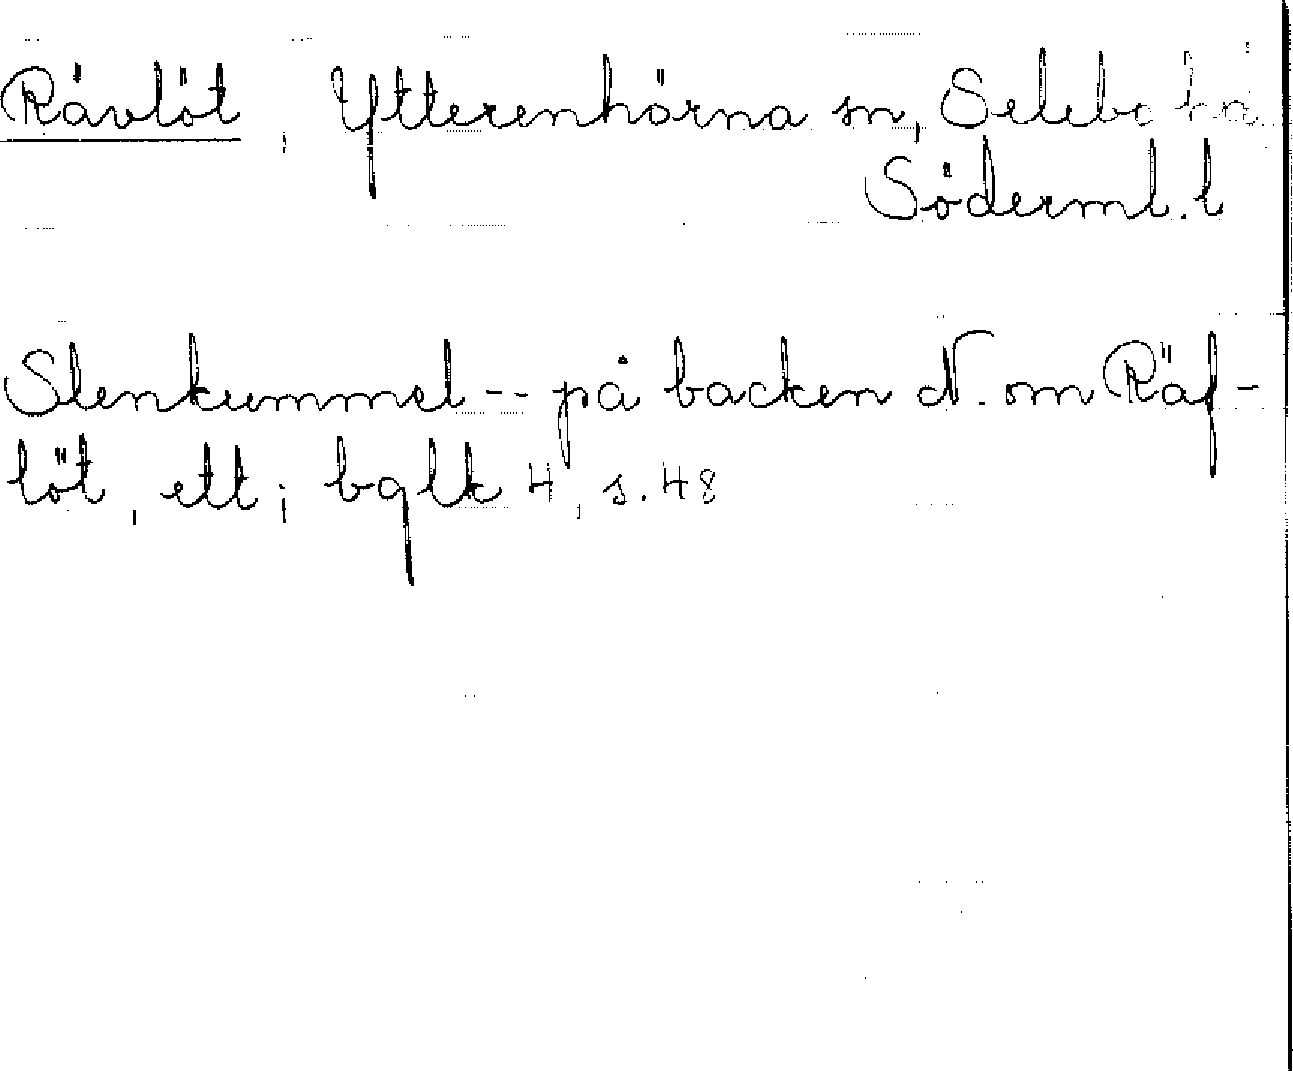 Rävlöt, Ytterenhörna sn, Selebo hd
Söderml. l
Stenkummel -- på backen N. om Räf-
löt, ett; bglk 4, s. 48